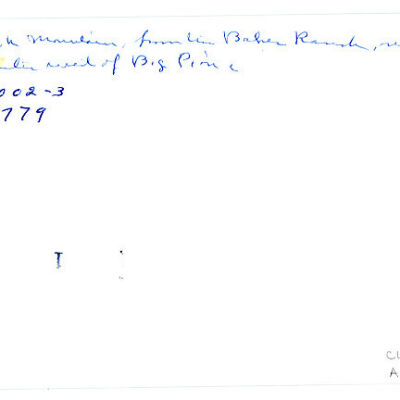 Mountain, from the Baker Ranch,
west of Big Pine
002-3
779
I
CU
A